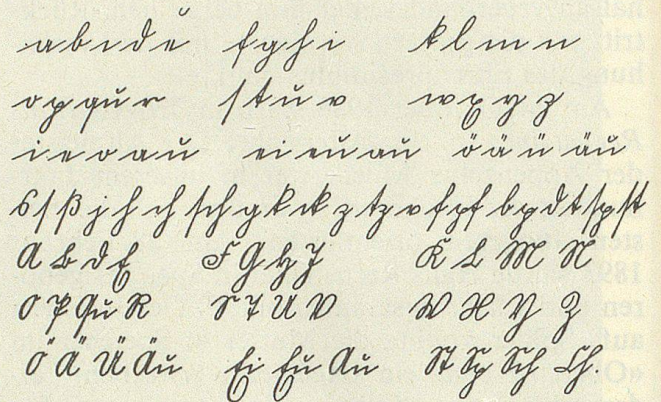 a b c d e f g h i k l m n
o p qu r ſ t u v w x y z
i e o a u ei eu au ö ä ü äu
s ſ ß j h ch ſch g k ck z tz v f pf b p d t ſp ſt
A B D E F G H J K L M N
O P Qu R S T U V W X Y Z
Ö Ä Ü Äu Ei Eu Au St Sp Sch Ch.